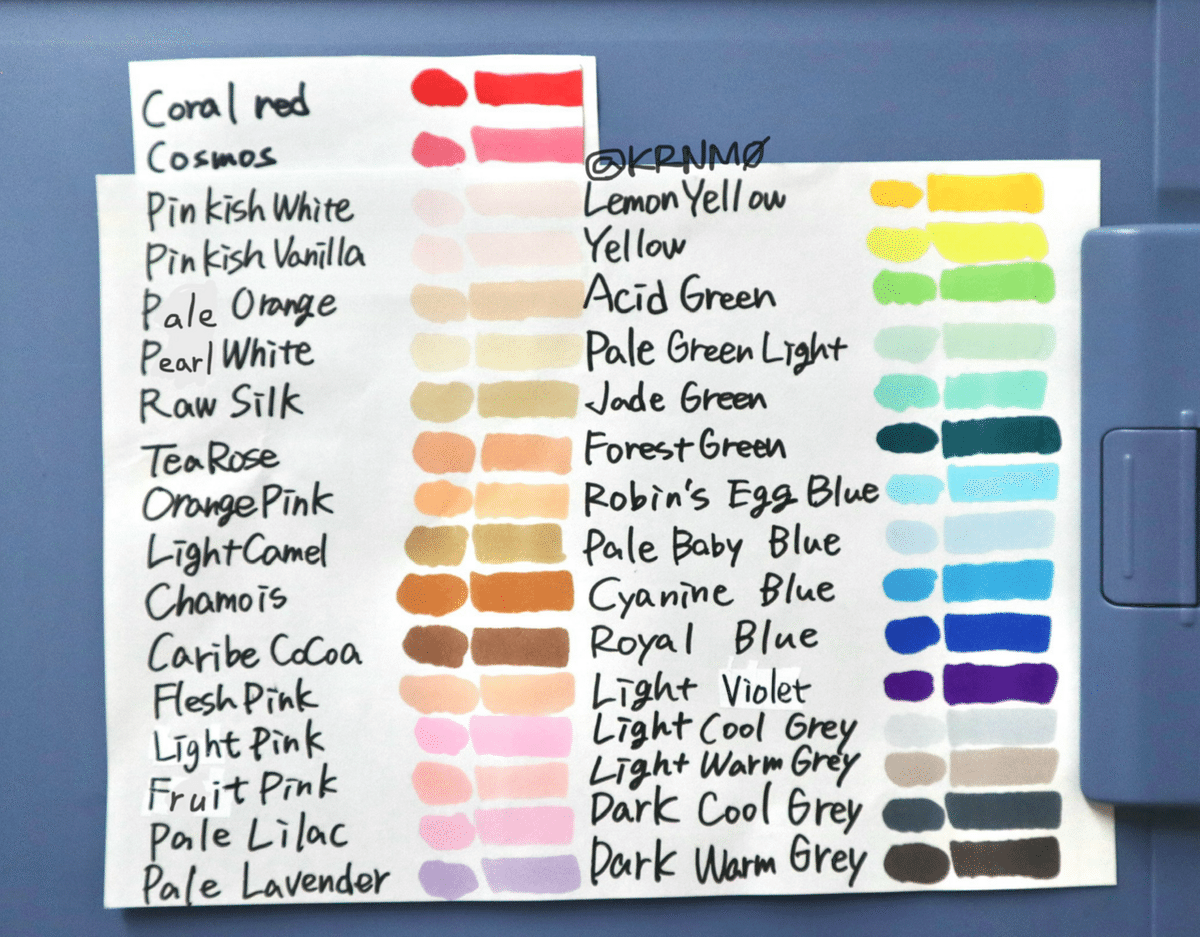 Coral red
Cosmos
Pinkish White
Pinkish Vanilla
Pale Orange
Pearl White
Raw Silk
Tea Rose
Orange Pink
Light Camel
Chamois
Caribe CoCoa
Flesh Pink
Light Pink
Fruit Pink
Pale Lilac
Pale Lavender
@KRNMØ
Lemon Yellow
Yellow
Acid Green
Pale Green Light
Jade Green
Forest Green
Robin's Egg Blue
Pale Baby Blue
Cyanine Blue
Royal Blue
Light Violet
Light Cool Grey
Light Warm Grey
Dark Cool Grey
Dark Warm Grey